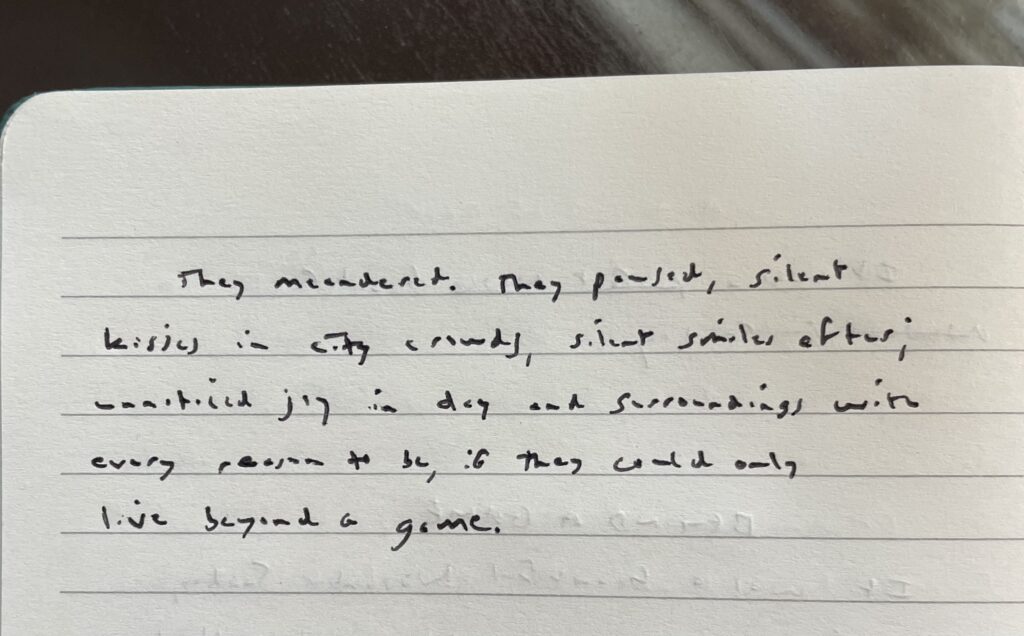 They meandered. They paused, silent
kisses in city crowds, silent smiles after;
unnoticed joy in day and surroundings with
every reason to be, if they could only
live beyond a game.